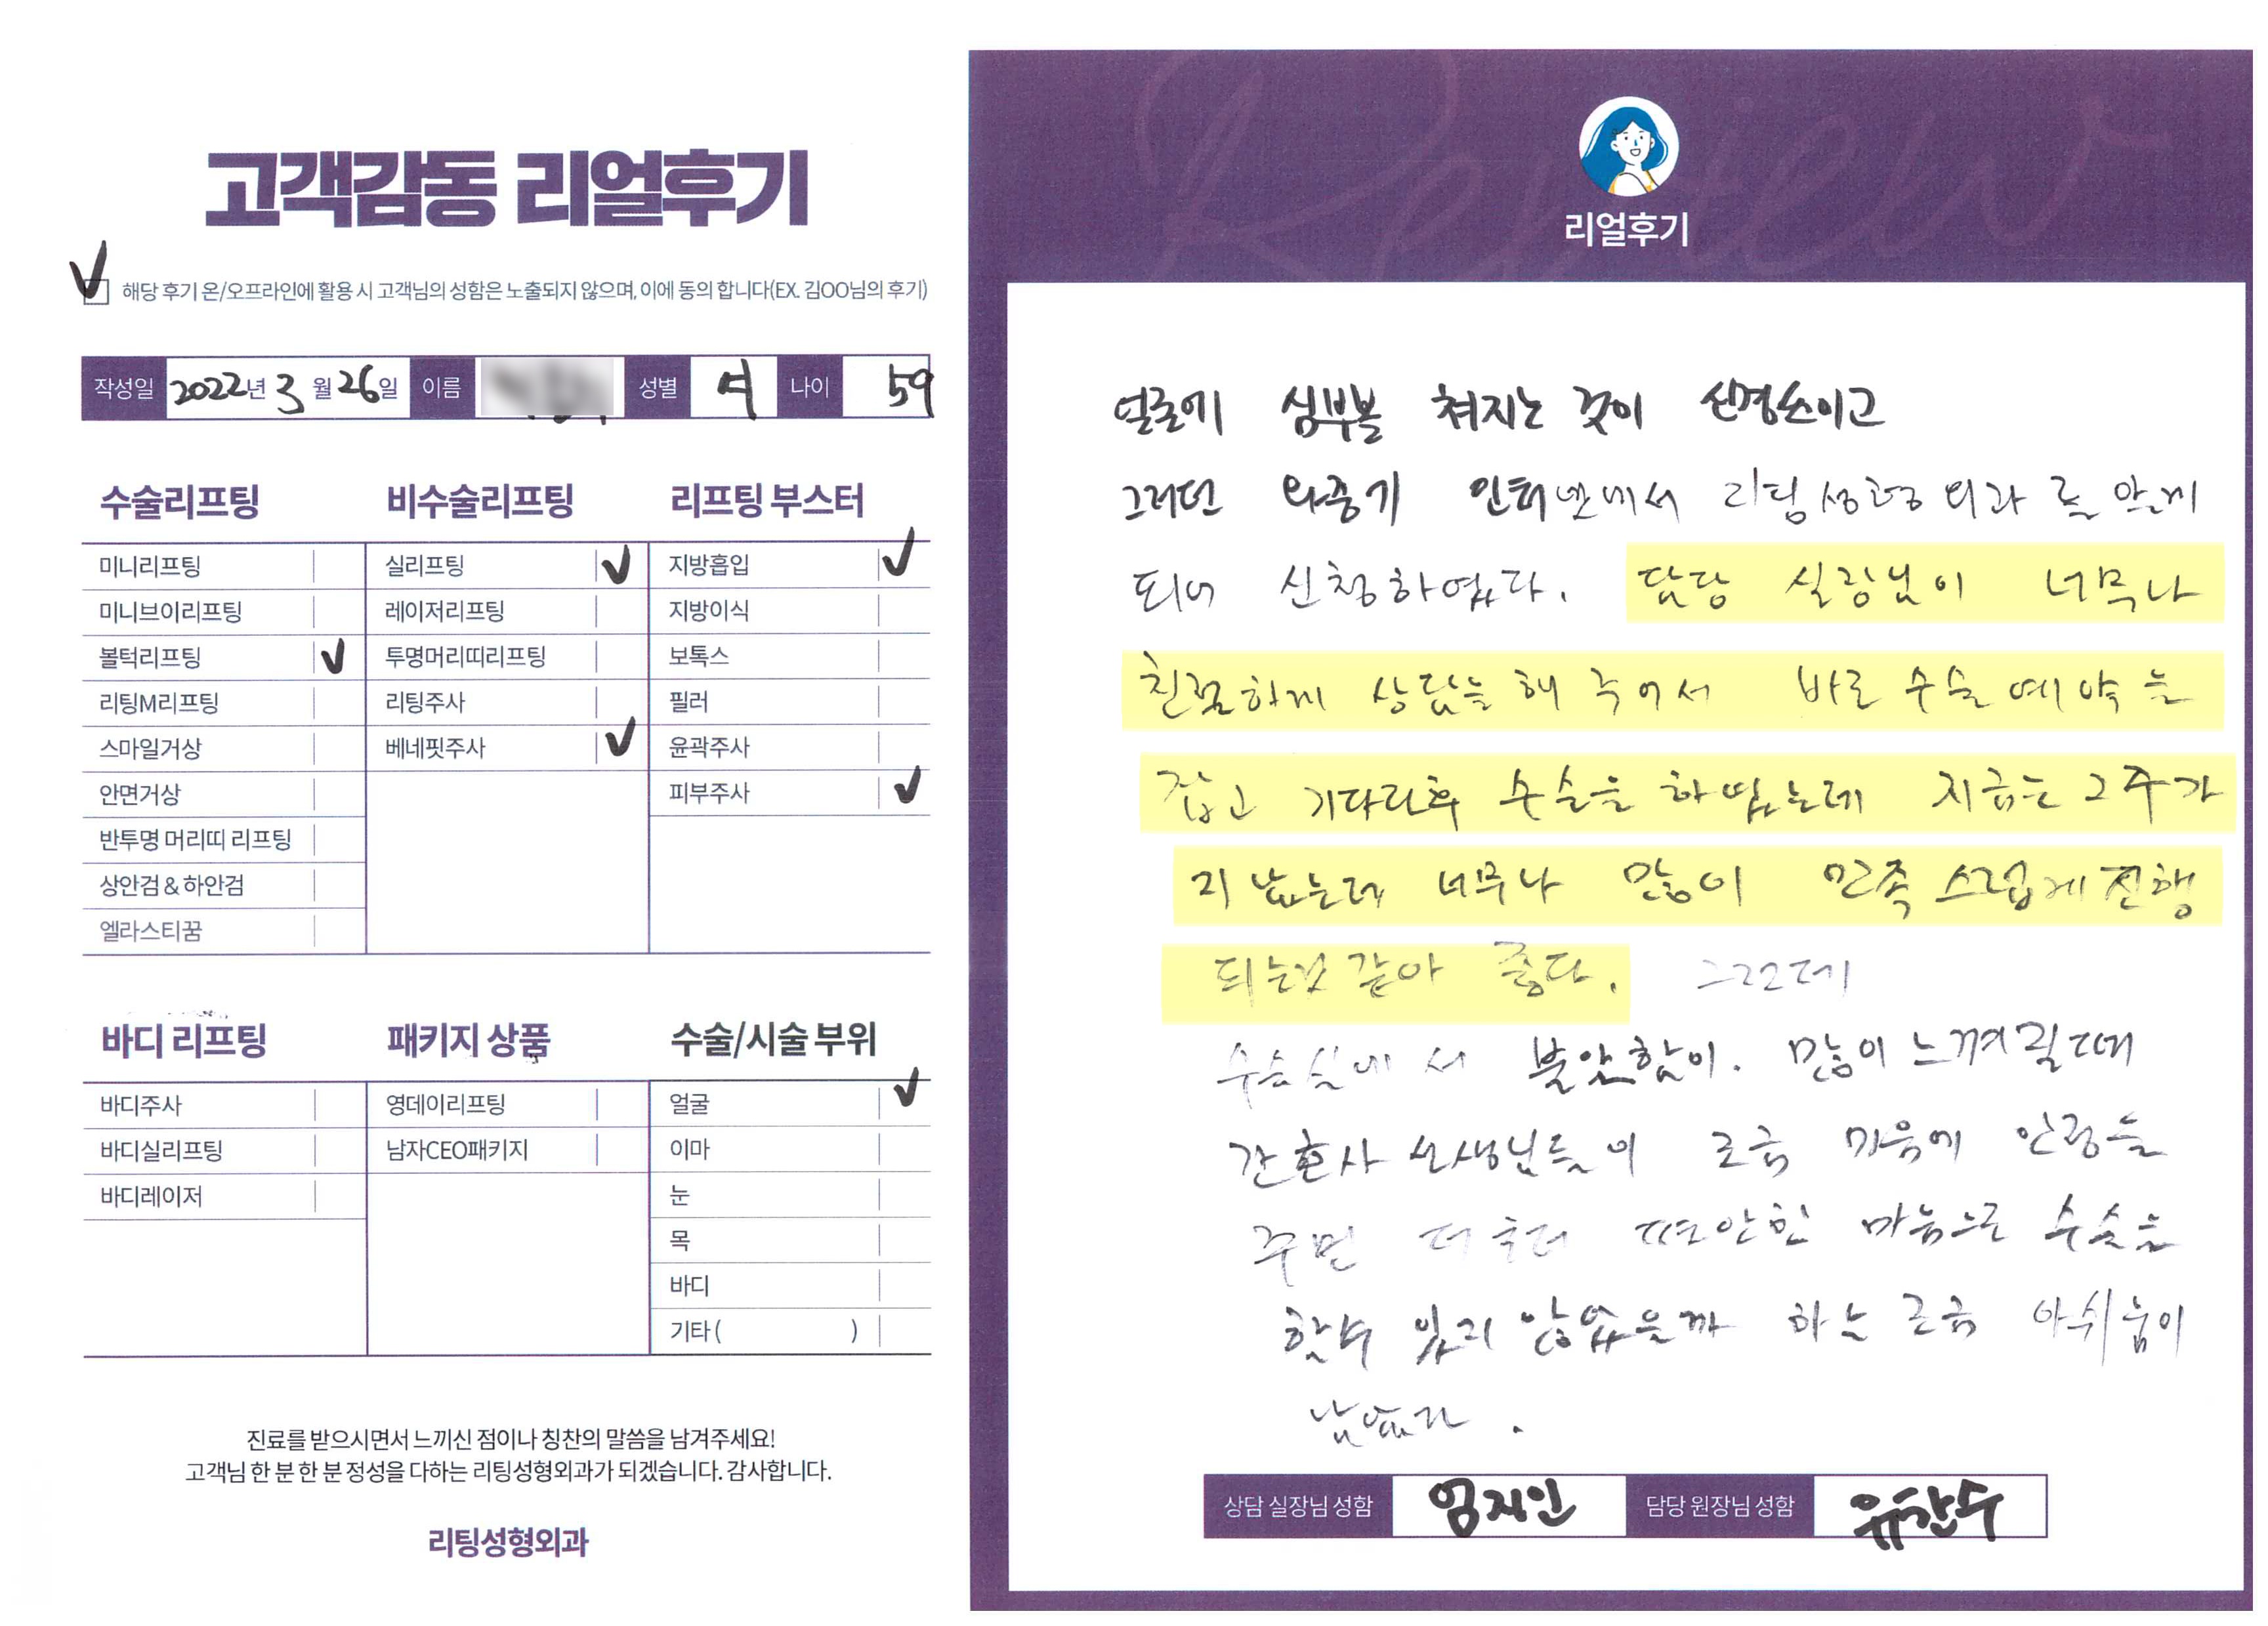 고객감동 리얼후기
해당 후기 온/오프라인에 활용 시 고객님의 성함은 노출되지 않으며, 이에 동의 합니다(EX. 김OO님의 후기)
작성일 2022년 3월 26일 이름 성별 여 나이 59
수술리프팅
미니리프팅
미니브이리프팅
볼턱리프팅
리팅M리프팅
스마일거상
안면거상
반투명 머리띠 리프팅
상안검 & 하안검
엘라스티꿈
비수술리프팅
실리프팅
레이저리프팅
투명머리띠리프팅
리팅주사
베네핏주사
리프팅 부스터
지방흡입
지방이식
보톡스
필러
윤곽주사
피부주사
바디 리프팅
바디주사
바디실리프팅
바디레이저
패키지 상품
영데이리프팅
남자CEO패키지
수술/시술 부위
얼굴
이마
눈
목
바디
기타 ( )
진료를 받으시면서 느끼신 점이나 칭찬의 말씀을 남겨주세요!
고객님 한 분 한 분 정성을 다하는 리팅성형외과가 되겠습니다. 감사합니다.
리팅성형외과
Review
리얼후기
얼굴에 심부볼 쳐지는 것이 신경쓰이고
그러던 와중에 인터넷에서 리팅성형외과를 알게
되어 신청하였다. 담당 실장님이 너무나
친절하게 상담을 해 주어서 바로 수술 예약을
잡고 기다린후 수술을 하였는데 지금은 2주가
지났는데 너무나 많이 만족스럽게 진행
되는것 같아 좋다. 그런데
수술실에서 불안함이. 많이 느껴질때
간호사 선생님들이 조금 마음에 안정을
주면 더욱더 편안한 마음으로 수술을
할수 있지 않았을까 하는 조금 아쉬움이
남았다.
상담 실장님 성함 엄지인 담당 원장님 성함 유한수